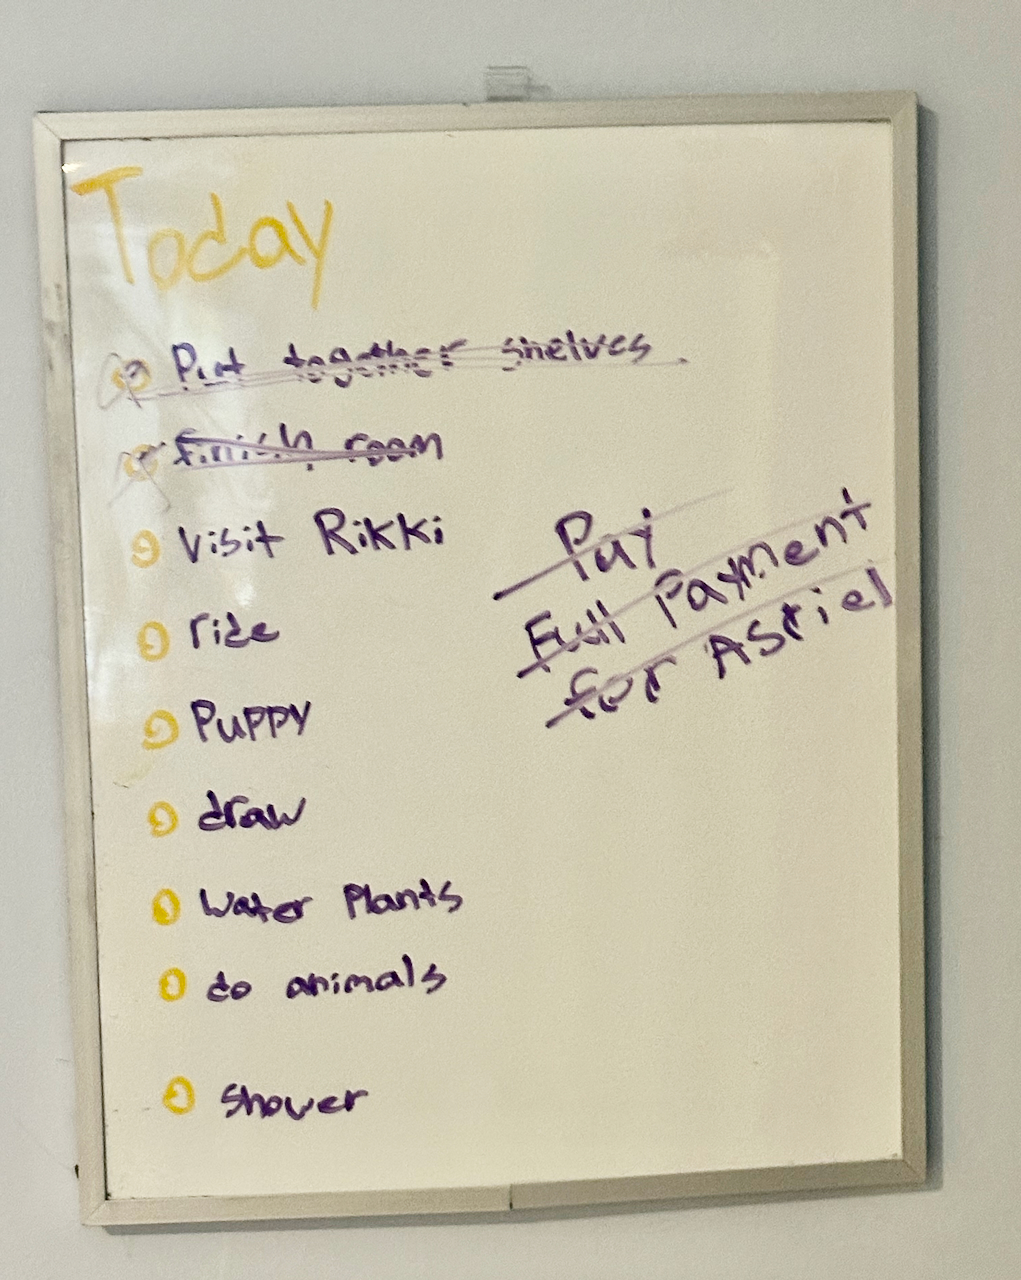 Today
Put together shelves
finish room
Visit Rikki
ride
Puppy
draw
Water Plants
do animals
Shower
Pay
Full Payment
for Astiel